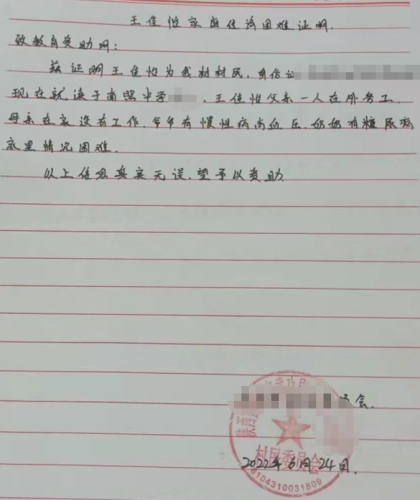 王佳怡家庭经济困难证明.
致教育资助网:
兹证明王佳怡为我村村民,身份证
现在就读于南昭中学 ,王佳怡父亲一人在外务工
母亲在家没有工作,爷爷有慢性病高血压,奶奶有糖尿病
家里情况困难.
以上信息真实无误,望予以资助.
会.
村民委员会
2022年6月24日.
6104310031809